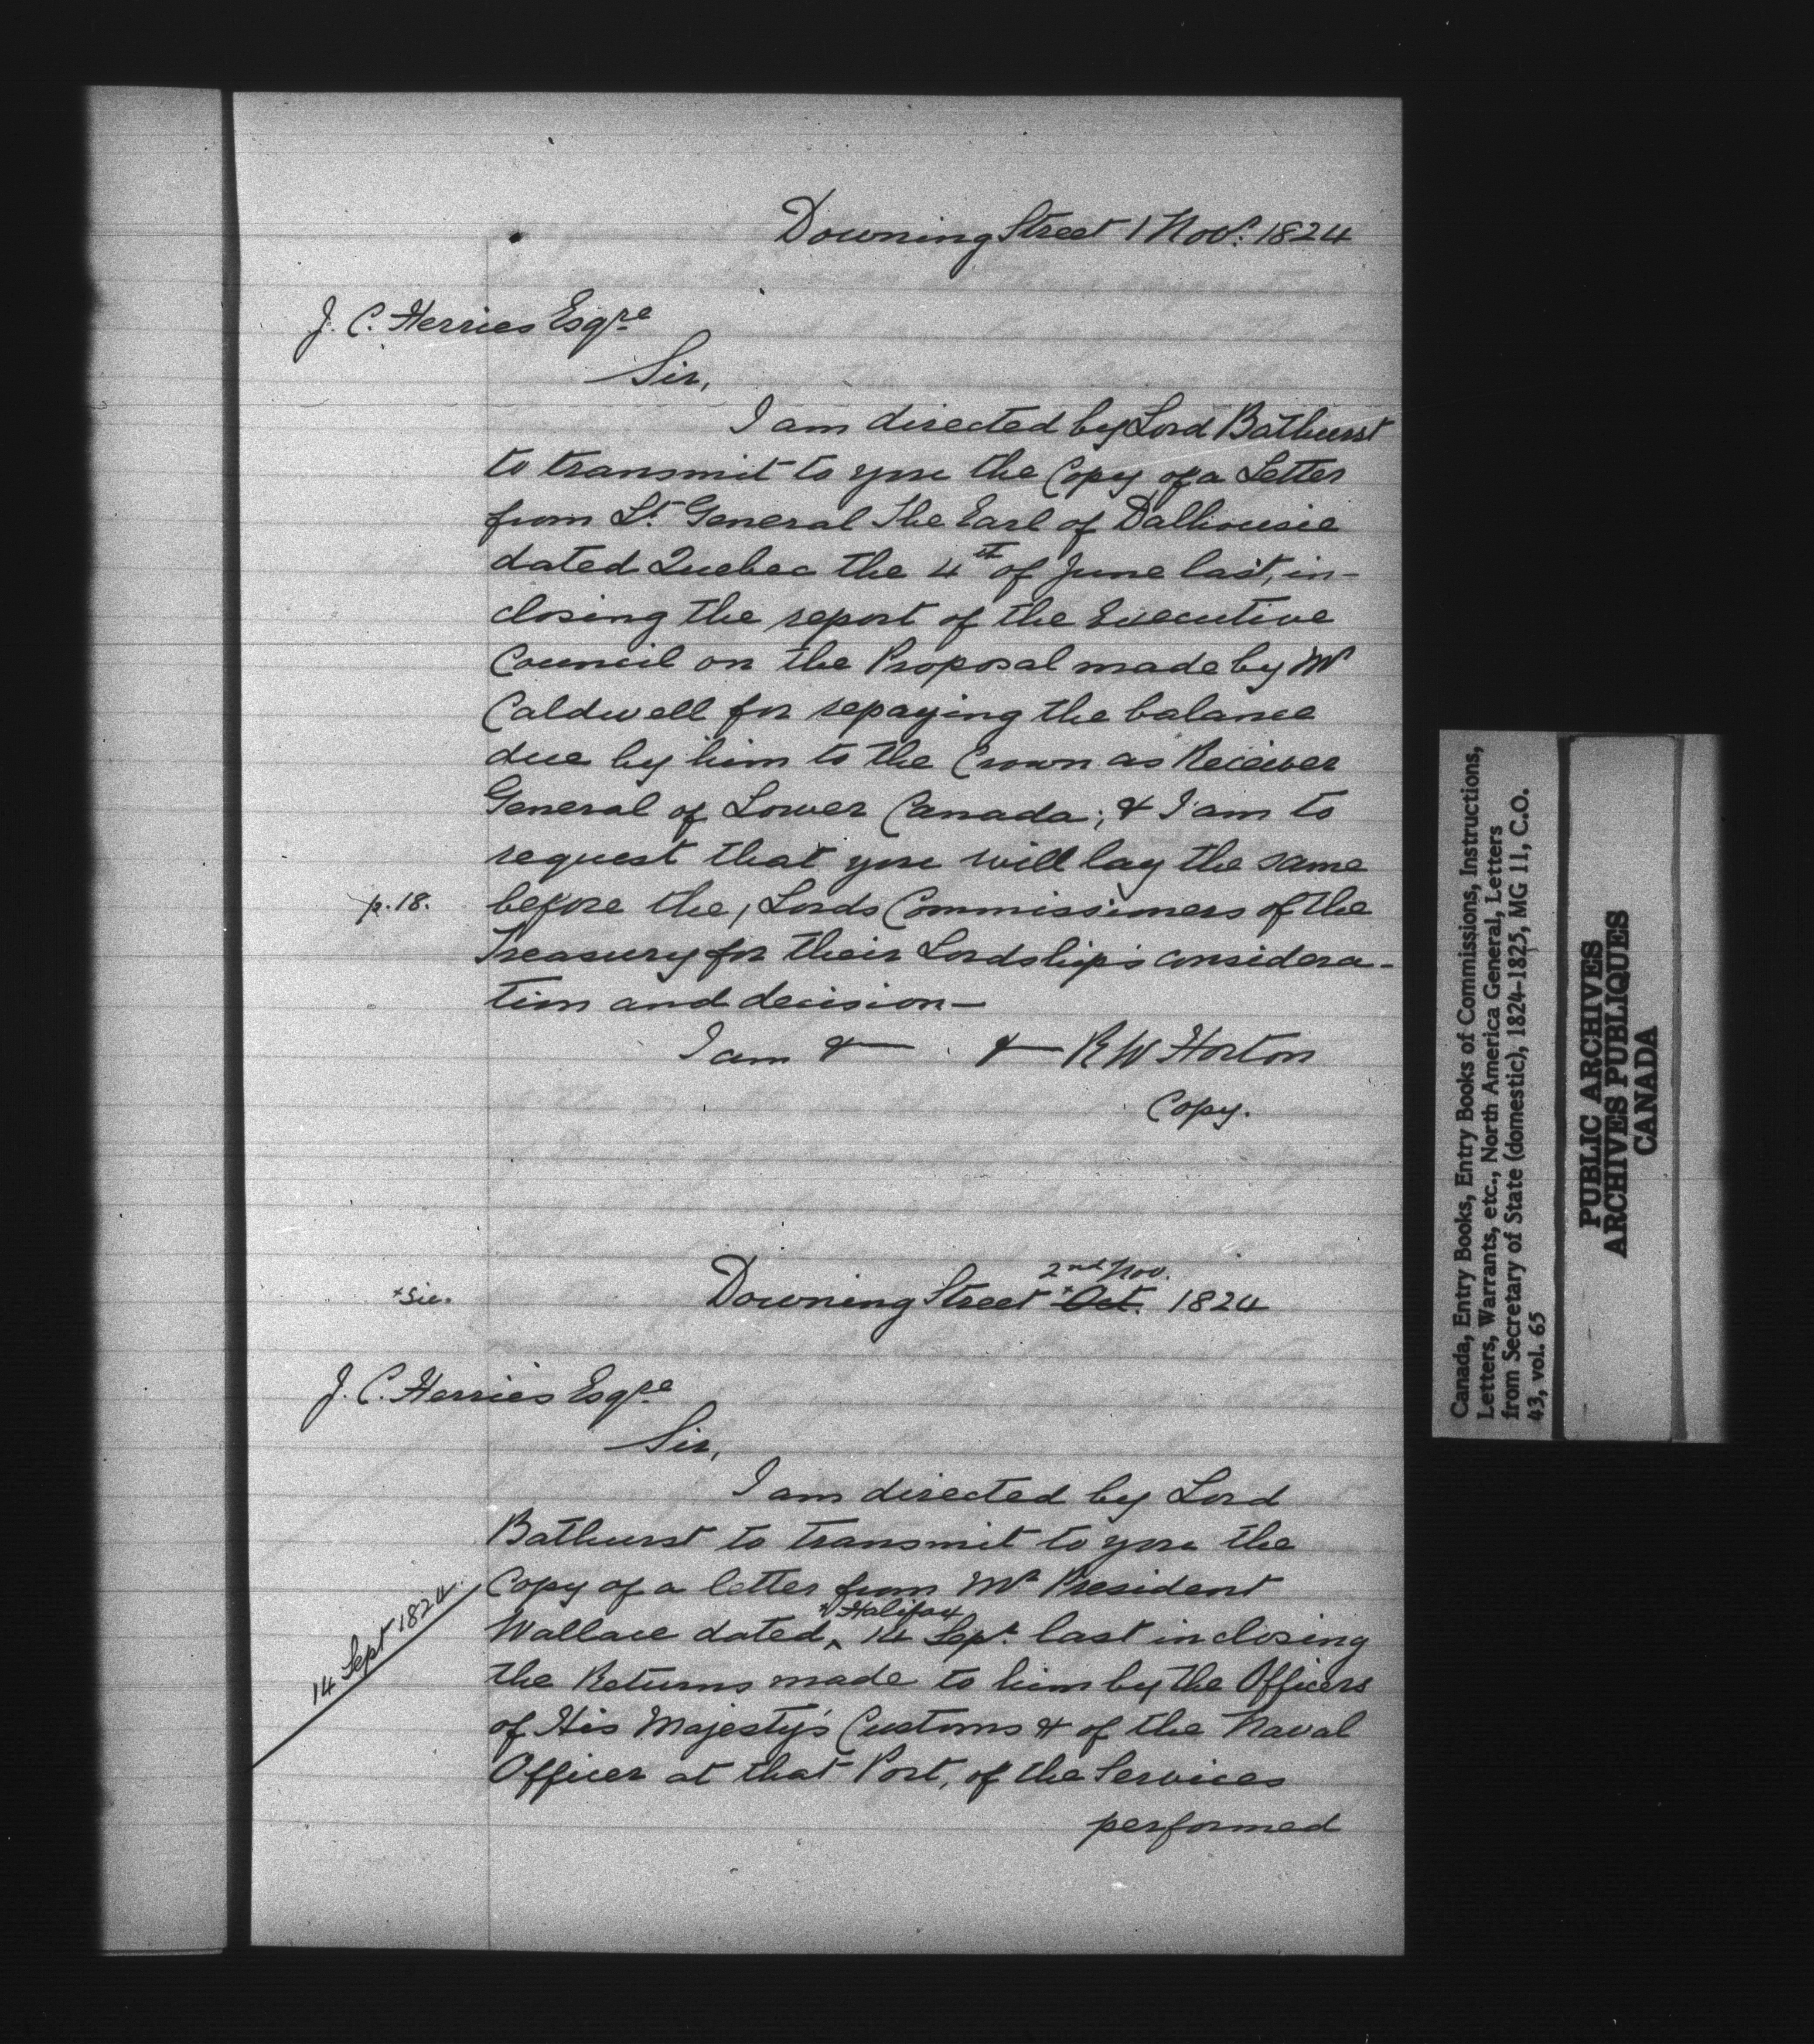 Downing Street 1 Nov.r 1824
J. C. Herries Esqre
Sir,
I am directed by Lord Bathurst
to transmit to you the Copy of a Letter
from Lt. General The Earl of Dalhousie
dated Quebec the 4th of June last, in-
closing the report of the Executive
Council on the Proposal made by Mr
Caldwell for repaying the balance
due by him to the Crown as Receiver
General of Lower Canada; & I am to
request that you will lay the same
p.18. before the, Lords Commissioners of the
Treasury for their Lordships considera-
tion and decision—
I am &— &— R W Horton
Copy.
2nd Nov.
+sic. Downing Street +Oct. 1824
J. C. Herries Esqre
Sir,
I am directed by Lord
Bathurst to transmit to you the
Copy of a letter from Mr President
14 Sept 1824
Halifax
Wallace dated ^ 14 Sept. last inclosing
the Returns made to him by the Officers
of His Majesty's Customs & of the Naval
Officer at that Port, of the Services
performed
Canada, Entry Books, Entry Books of Commissions, Instructions,
Letters, Warrants, etc., North America General, Letters
from Secretary of State (domestic), 1824-1825, MG 11, C.O.
43, vol. 65
PUBLIC ARCHIVES
ARCHIVES PUBLIQUES
CANADA